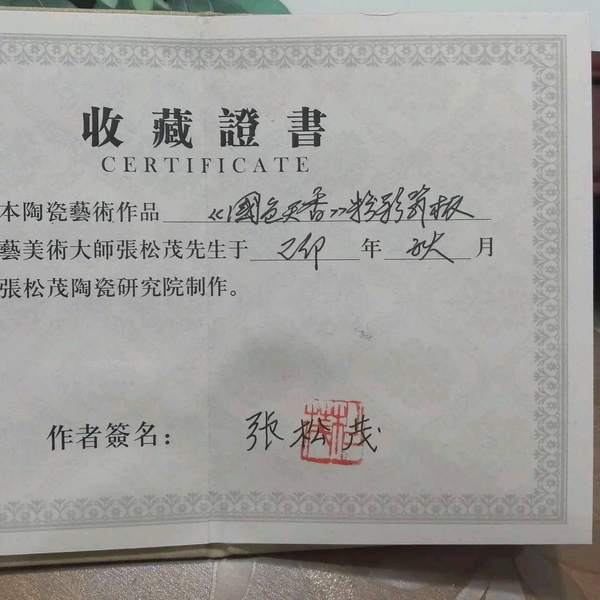 收藏證書
CERTIFICATE
本陶瓷藝術作品 《國色天香》粉彩瓷板
藝美術大師張松茂先生于 年 秋 月
張松茂陶瓷研究院制作。
作者簽名： 張松茂